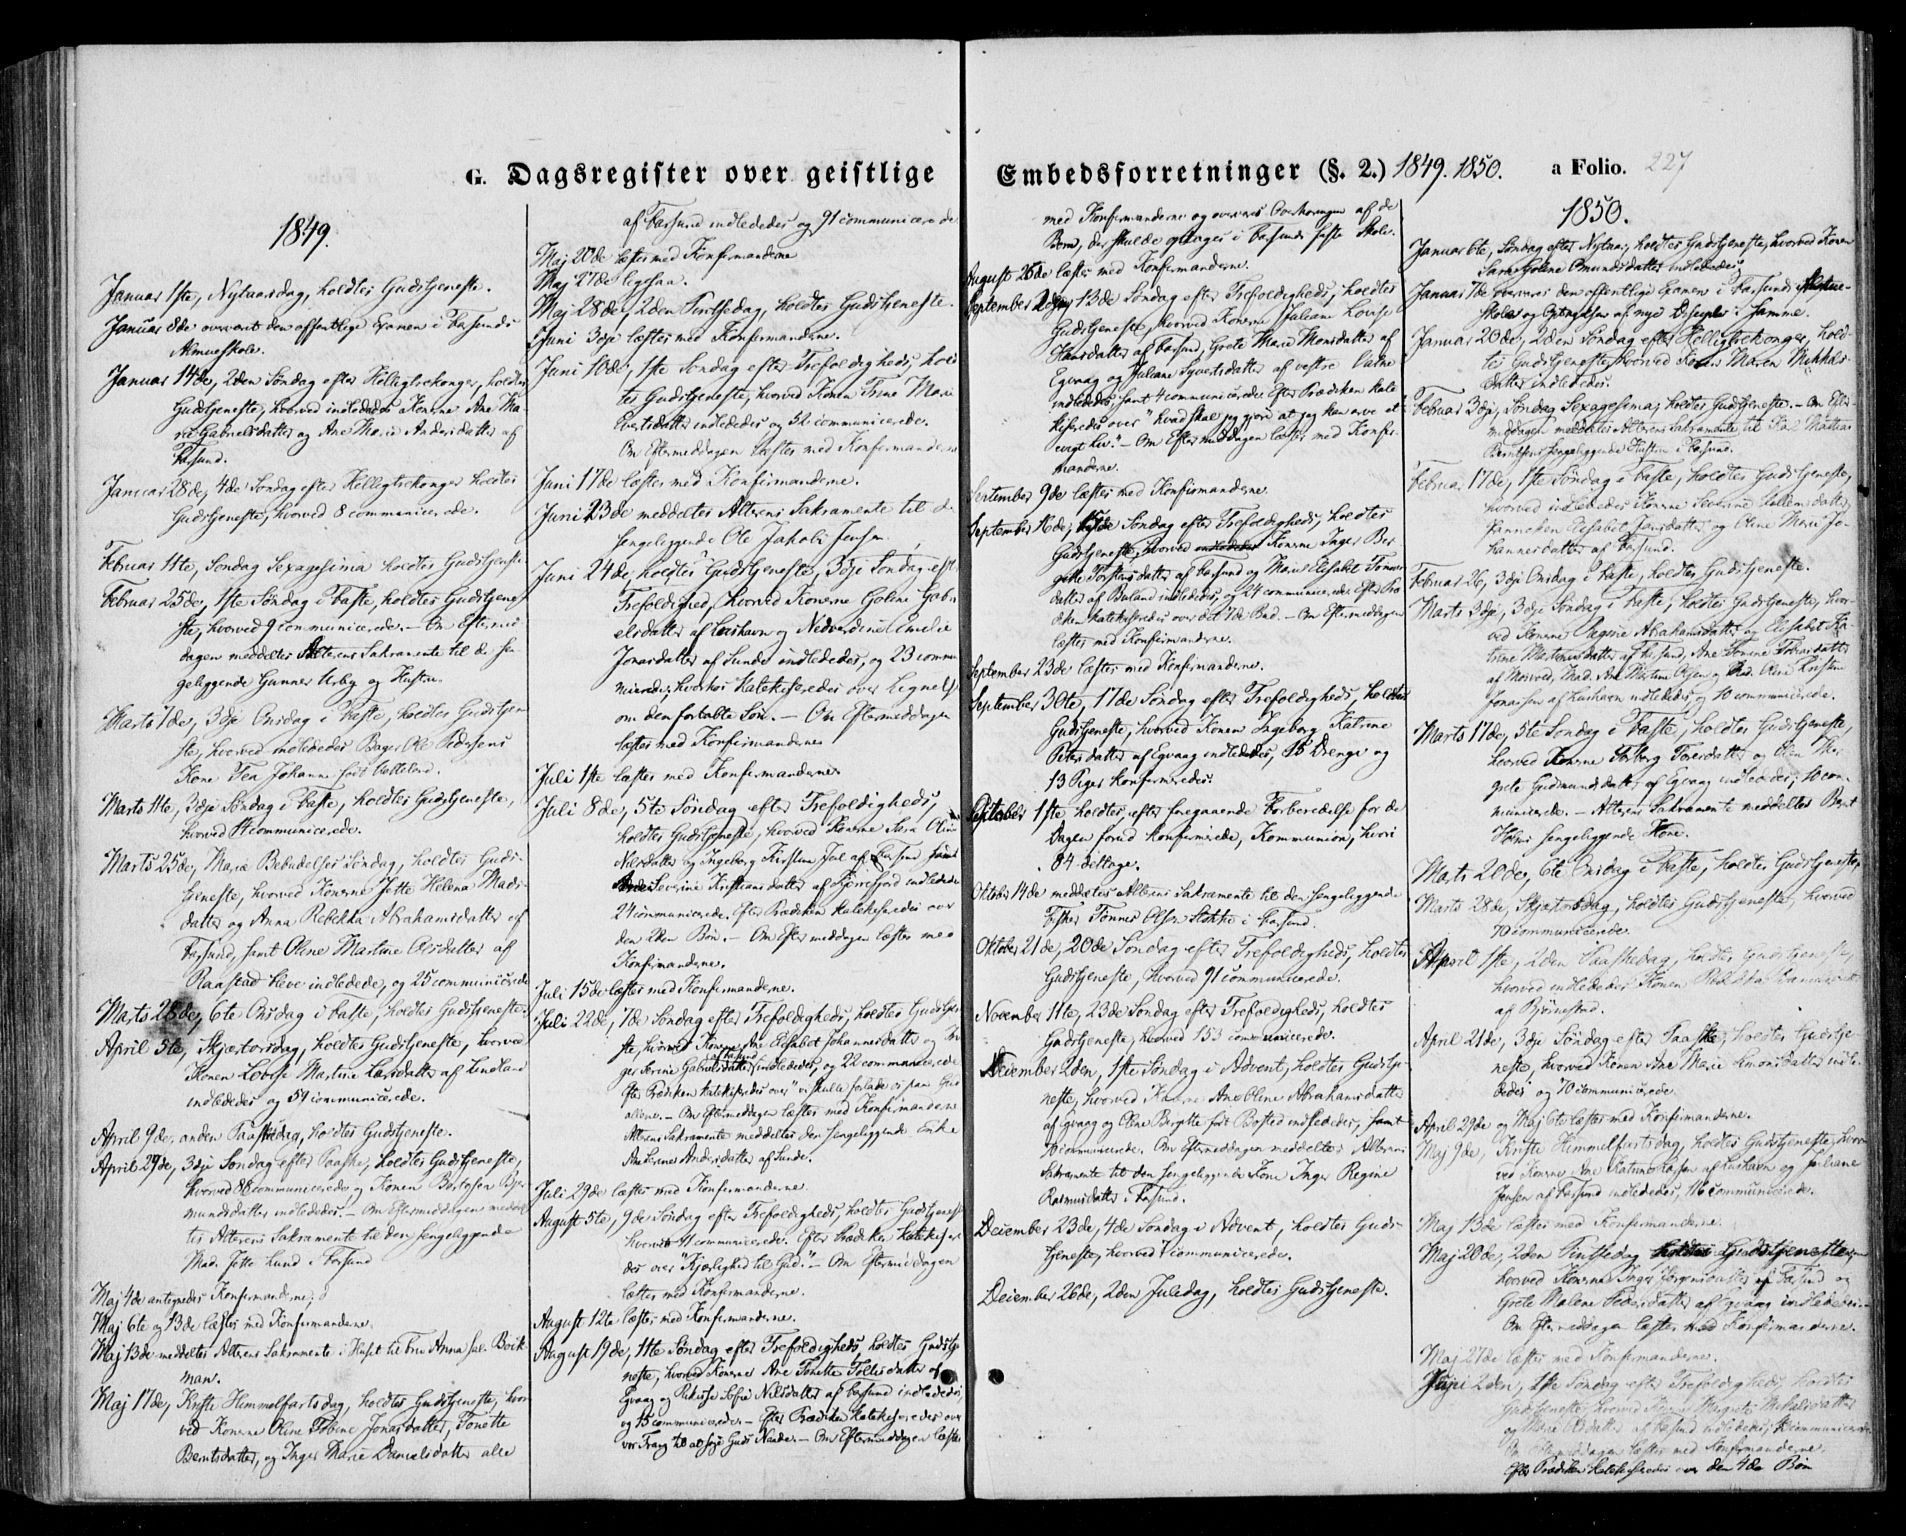 G. Dagsregister over geistlige Embedsforretninger (§. 2.) 1849. 1850. a Folio. 227
1849.
Januar 1ste, Nytaarsdag, holdtes Gudstjeneste.
Januar 8de overværet den offentlige Examen i Farsunds
Almueskole.
Januar 14de, 2den Søndag efter Helligtrekonger, holdtes
Gudstjeneste, hvorved indlededes Konerne Ane Ma-
rie Gabrielsdatter og Ane Marie Andersdatter af
Farsund.
Januar 28de, 4de Søndag efter Helligtrekonger holdtes
Gudstjeneste, hvorved 8 communicerede.
Februar 11te, Søndag Sexagesima holdtes Gudstjeneste
Februar 25de, 1ste Søndag i Faste, holdtes Gudstjene-
ste, hvorved 9 communicerede. – Om Eftermid
dagen meddeltes Alterens Sakramente til de sen-
geliggende Gunner Urby og Hustru.
Marts 7de, 3die Onsdag i Faste, holdtes Gudstjen
ste, hvorved indlededes Bager Ole Pedersens
Kone Tea Johanne født
Marts 11te, 3die Søndag i Faste, holdtes Gudstjeneste,
hvorved 14 communicerede.
Marts 25de, Mariæ Bebudelses Søndag, holdtes Guds-
tjeneste, hvorved Konerne Jette Helena Mads-
datter og Anna Rebekka Abrahamsdatter af
Farsund, samt Oline Martine Olsdatter af
Raastad Kleve indlededes, og 25 communicerede
Marts 28de, 6te Onsdag i Faste, holdtes Gudstjeneste.
April 5te, Skjærtorsdag, holdtes Gudstjeneste, hvorved
Konen Lovise Martine Larsdatter af Lindland
indlededes og 51 communicerede.
April 9de, anden Paaskedag, holdtes Gudstjeneste.
April 29de, 3die Søndag efter Paaske, holdtes Gudstjeneste,
hvorved 88 communicerede og Konen
mundsdatter indlededes. – Om Eftermiddagen meddel
tes Alterens Sakramente til den sengeliggende
Mad. Jette Lund i Farsund
Maj 4de antegnedes Konfirmanderne.
Maj 6te og 13de læstes med Konfirmanderne.
Maj 13de meddeltes Alterens Sakramente i Huset til Fru Anna Beck
man.
Maj 17de, Kristi Himmelfartsdag, holdtes Gudstjeneste, hvor
ved Konerne Oline Tobine Jonasdatter, Tonette
Berntsdatter, og Inger Marie Danielsdatter alle
af Farsund indlededes og 91 communicerede
Maj 20de læstes med Konfirmanderne
Maj 27de ligesaa.
Maj 28de, 2den Pintsedag, holdtes Gudstjeneste.
Juni 3die læstes med Konfirmanderne.
Juni 10de, 1ste Søndag efter Trefoldigheds, hold
tes Gudstjeneste, hvorved Konen Trine Marie
Evertsdatter indlededes og 52 communicerede.
Om Eftermiddagen læstes med Konfirmanderne
Juni 17de læstes med Konfirmanderne.
Juni 23de meddeltes Alterens Sakramente til d
sengeliggende Ole Jakob Jensen
Juni 24de, holdtes Gudstjeneste, 3die Søndag eft
Trefoldighed, hvorved Konerne Goline Gabri
elsdatter af Loshavn og Nedverdine Emelie
Jonasdatter af Sunde indlededes, og 23 commu
nicerede; hvorhos katekiseredes over Lignels
om den fortabte Søn. – Om Eftermiddagen
læstes med Konfirmanderne
Juli 1ste læstes med Konfirmanderne.
Juli 8de, 5te Søndag efter Trefoldigheds,
holdtes Gudstjeneste, hvorved Konerne Sara Oline
Nilsdatter og Ingeborg Kirstine Juel af Farsund samt
Severine Kristiansdatter af Spærrefjord indlededes
24 communicerede. Efter Prædiken katekiseredes over
den 2den Bøn. – Om Eftermiddagen læstes med
Konfirmanderne.
Juli 15de læstes med Konfirmanderne.
Juli 22de, 7de Søndag efter Trefoldigheds, holdtes Gudstjen
ste, hvorved Konerne Ane Elisabet Johannesdatter og In
ger Serine Gabrielsdatter af Farsund indlededes, og 22 communicerede
Efter Prædiken katekiseredes over "vi skulle forlade os paa Gud
alene. – Om Eftermiddagen læstes med Konfirmanderne
Alterens Sakramente meddeltes den sengeliggende Enke
Ane Andersdatter af Sunde.
Juli 29de læstes med Konfirmanderne.
August 5te, 9de Søndag efter Trefoldigheds, holdtes Gudstjenest
hvorved 11 communicerede. Efter Prædiken katekisere
des over "Kjærlighed til Gud." – Om Eftermiddagen
læstes med Konfirmanderne.
August 12te læstes med Konfirmanderne.
August 19de, 11te Søndag efter Trefoldigheds, holdtes Gudstje
neste, hvorved Konerne Ane Tonette Tollisdatter af
Egvaag og Sofie Nilsdatter af Farsund indlededes,
og 15 communicerede. – Efter Prædiken katekiseredes over
vor Trang til at søge Guds Naade. – Om Eftermiddagen læstes
med Konfirmanderne og overværes Overhøringen af de
Børn, der skulde optages i Farsunds faste Skole.
August 26de læstes med Konfirmanderne.
September 2den, 13de Søndag efter Trefoldigheds, holdtes
Gudstjeneste, hvorved Konerne Juliane Lovise
Hansdatter af Farsund, Grete Marie Monsdatter af
Egvaag og Juliane Syvertsdatter af vestre Vatne
indlededes samt 4 communicerede. Efter Prædiken kate
kiseredes over "hvad skal jeg gjøre at jeg kan arve et
evigt Liv." – Om Eftermiddagen læstes med Konfir-
manderne.
September 9de læstes med Konfirmanderne.
September 16de, 15de Søndag efter Trefoldigheds, holdtes
Gudstjeneste, hvorved indlededes Konerne Inger Ber
gitte Torstensdatter af Farsund og Maren Elisabet Tønnes
datter af Buland indlededes, og 24 communicerede. Efter Præ
diken katekiseredes over det 7de Bud. – Om Eftermiddagen
læstes med Konfirmanderne.
September 23de læstes med Konfirmanderne.
September 30te, 17de Søndag efter Trefoldigheds, holdtes
Gudstjeneste, hvorved Konen Ingeborg Katrine
Petersdatter af Egvaag indlededes, 15 Drenge og
13 Piger konfirmeredes.
Oktober 1ste holdtes, efter foregaaende Forberedelse for de
Dagen forud konfirmerede, Kommunion, hvori
84 deltoge.
Oktober 14de meddeltes Alterens Sakramente til den sengeliggende
Fisker Tønnes Olsen Stokke i Farsund.
Oktober 21de, 20de Søndag efter Trefoldigheds, holdtes
Gudstjeneste, hvorved 91 communicerede.
November 11te, 23de Søndag efter Trefoldigheds, holdtes
Gudstjeneste, hvorved 153 communicerede.
December 2den, 1ste Søndag i Advent, holdtes Gudstje
neste, hvorved Konerne Ane Oline Abrahamsdatter
af Egvaag og Oline Bergitte født Bosted indlededes, samt
70 communicerede. Om Eftermiddagen meddeltes Alterens
Sakramente til den sengeliggende Kone Inger Regine
Rasmusdatter i Farsund.
December 23de, 4de Søndag i Advent, holdtes Guds-
tjeneste, hvorved 7 communicerede.
December 26de, 2den Juledag, holdtes Gudstjeneste.
1850.
Januar 6te, Søndag efter Nytaar, holdtes Gudstjeneste, hvorved Konen
Sara Goline Omundsdatter indlededes.
Januar 7de overværes den offentlige Examen i Farsunds Almue-
skole og Optagelsen af nye Disciple i Samme.
Januar 20de, 2den Søndag efter Helligtrekonger, hold-
tes Gudstjeneste, hvorved Konen Maren Mikkels-
datter indlededes.
Februar 3die, Søndag Sexagesima, holdtes Gudstjeneste. – Om Efter
middagen meddeltes Alterens Sakramente til Karl Mathias
Berntsens sengeliggende Hustru i Farsund.
Februar 17de, 1ste Søndag i Faste, holdtes Gudstjeneste,
hvorved indlededes Konerne Severine Sallemsdatter,
Elisabet Jensdatter og Oline Marie Jo-
hannesdatter af Farsund.
Februar 26, 3die Onsdag i Faste, holdtes Gudstjeneste.
Marts 3die, 3die Søndag i Faste, holdtes Gudstjeneste, hvor-
ved Konerne Regine Abrahamsdatter og Elisabet Ka-
trine Mortensdatter af Farsund, Ane Tomine Tobiasdatter
af Mosvold, Mad. Ane Martine Olsen og Mad. Oline Kirstine
Jonassen af Loshavn indlededes, og 10 communicerede.
Marts 17de, 5te Søndag i Faste, holdtes Gudstjeneste,
hvorved Konerne Torborg Toresdatter og Mar
grete Gudmundsdatter af Egvaag indlededes, 10 com-
municerede. – Alterens Sakramente meddeltes Bernt
Holms sengeliggende Kone.
Marts 20de, 6te Onsdag i Faste, holdtes Gudstjeneste.
Marts 28de, Skjærtorsdag, holdtes Gudstjeneste, hvorved
70 communicerede.
April 1ste, 2den Paaskedag, holdtes Gudstjeneste,
hvorved indlededes Konen
af Bjørnestad.
April 21de, 3die Søndag efter Paaske, holdtes Gudstje
neste, hvorved Konen Ane Marie Simonsdatter indle-
dedes og 70 communicerede.
April 29de og Maj 6te læstes med Konfirmanderne.
Maj 9de, Kristi Himmelfartsdag, holdtes Gudstjeneste, hvor
ved Konerne Ane Katrine Larsen af Loshavn og Juliane
Jensen af Farsund indlededes, 116 communicerede.
Maj 13de læstes med Konfirmanderne.
Maj 20de, 2den Pintsedag holdtes Gudstjeneste,
hvorved Konerne Inger Jørgensdatter af Farsund og
Grete Malene Pedersdatter af Egvaag indlededes.
Om Eftermiddagen læstes med Konfirmanderne.
Maj 27de læstes med Konfirmanderne.
Juni 2den, 1ste Søndag efter Trefoldigheds, holdtes
Gudstjeneste, hvorved Konerne Mikkelsdatter
og Marie Olsdatter af Farsund indlededes, communicerede.
Om Eftermiddagen læstes med Konfirmanderne.
Efter Prædiken katekiseredes over den 4de Bøn